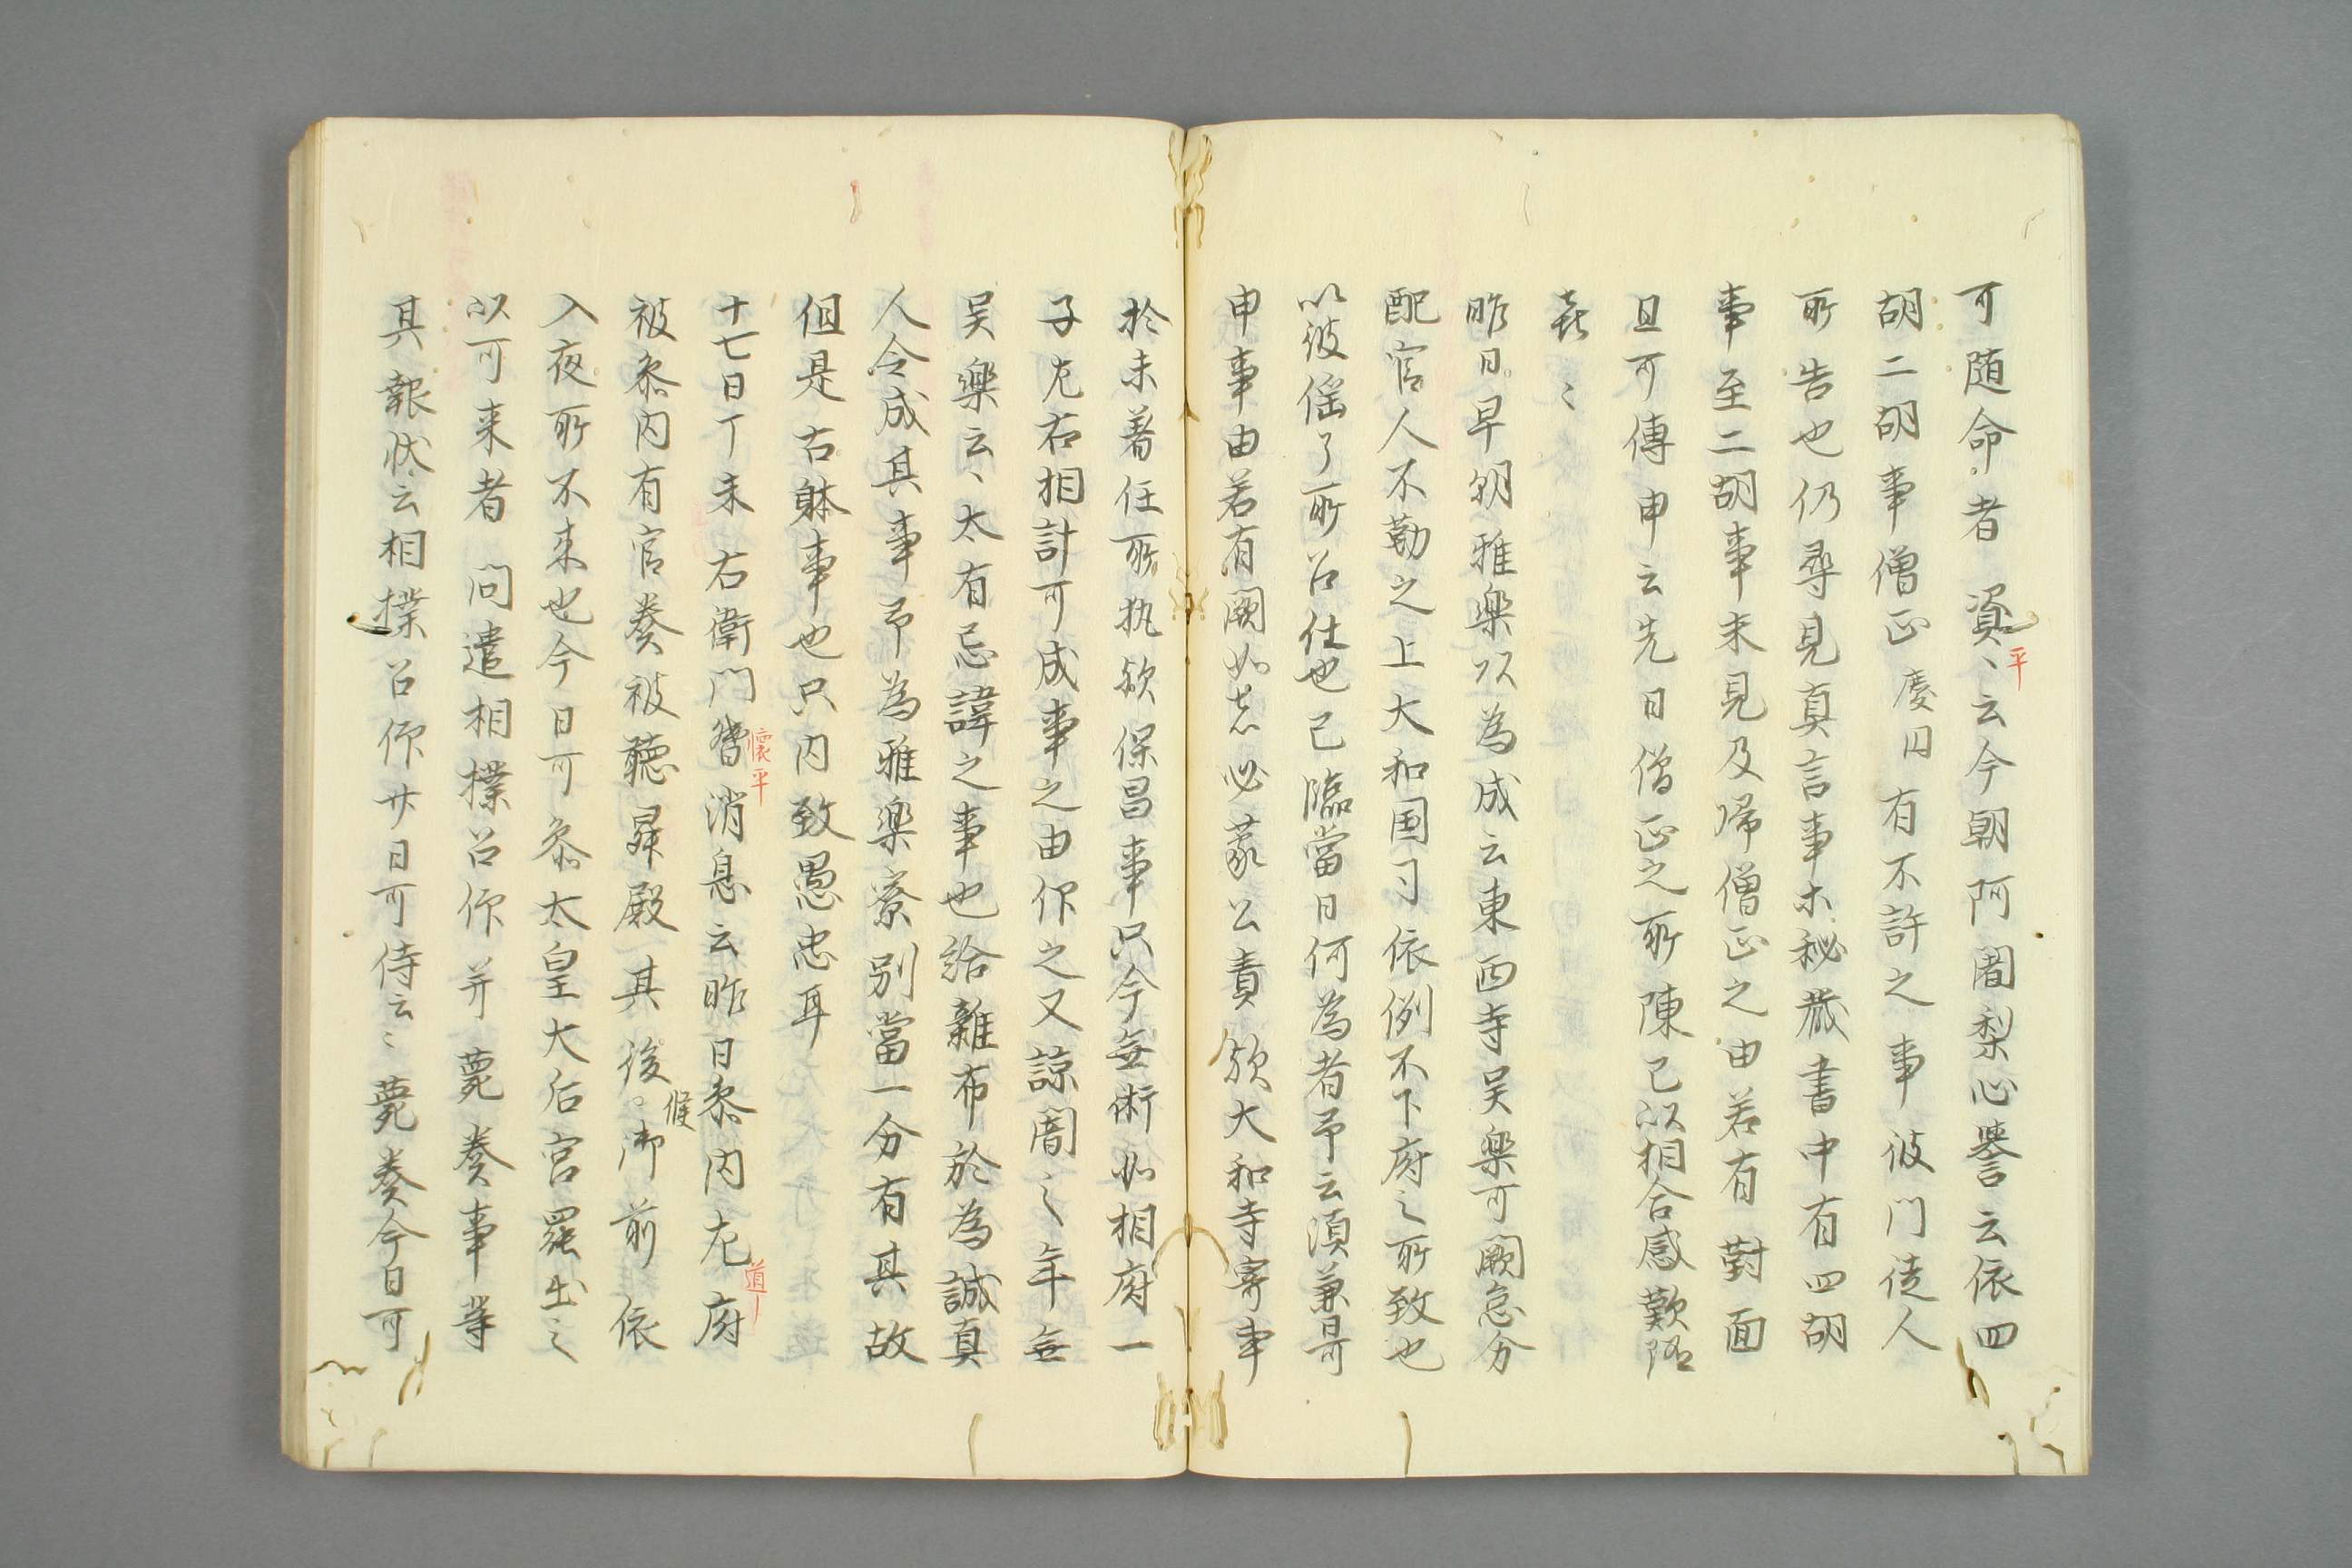 可随命者資、云今朝阿闍梨心誉云依四
平
胡二胡事僧正慶円有不許之事彼門徒人
所告也仍尋見真言事木秘蔵書中有四胡
事至二胡事未見及帰僧正之由若有對面
且可傳申云先日僧正之所陳已以相合感歎
㐂〻
昨日早朝雅樂以為成云東西寺吴樂可闕怠分
配官人不勤之上大和国司依例不下府之所致也
以彼傜了所召仕也已臨當日何為者予云須兼
申事由若有闕如者必蒙公責欤大和寺寄事
於未着任所執欤保昌事只今無術如相府一
子左右相計可成事之由作之又諒闇之年無
吴樂云、太有忌諱之事也給雜布於為誠真
人令成其事予為雅樂寮別當一分有其故
但是古躰事也只内致愚忠耳
十七日丁未右衛門督消息云昨日叅内左府
懐平
道〡
被叅内有官奏被聴昇殿其後。御前依
候
入夜所不来也今日可叅太皇大后宮罷出之
以可来者問遣相撲召仰并薨奏事等
其報状云相撲召仰廾日可侍云〻薨奏今日可